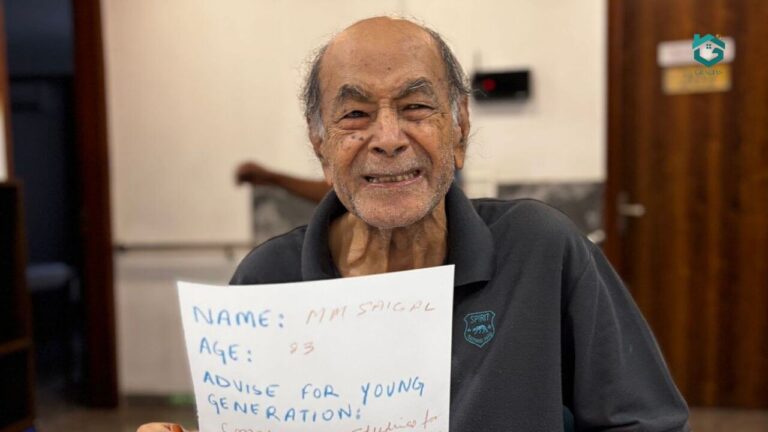 NAME: MM SAIGAL
AGE: 93
ADVISE FOR YOUNG
GENERATION:
for
SPIRIT